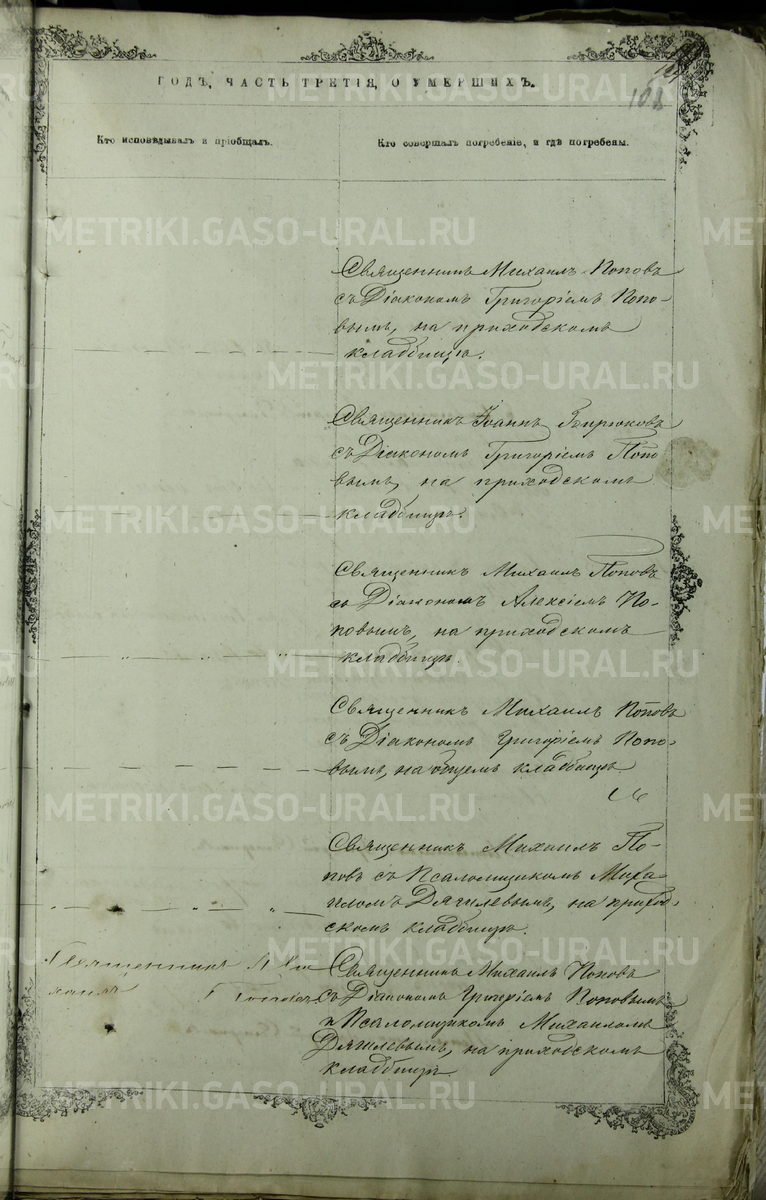 108
ГОДЪ, ЧАСТЬ ТРЕТІЯ, О УМЕРШИХЪ.
Кто исповѣдывалъ и пріобщалъ.
Кто совершалъ погребеніе, и гдѣ погребены.
Священникъ Михаилъ Поповъ
съ Діакономъ Григоріемъ Попо-
вымъ, на приходскомъ
кладбищѣ.
Священникъ Іоаннъ Бирюковъ
съ Діакономъ Григоріемъ Попо
вымъ, на приходскомъ
кладбищѣ.
Священникъ Михаилъ Поповъ
съ Діакономъ Алексіемъ По-
повымъ, на приходскомъ
кладбищѣ.
Священникъ Михаилъ Поповъ
съ Діакономъ Григоріемъ Попо-
вымъ, на общемъ кладбищѣ
Священникъ Михаилъ По-
повъ съ Псаломщикомъ Миха
иломъ Дягилевымъ, на приход-
скомъ кладбищѣ.
Священникъ Ми
хаилъ Поповъ
Священникъ Михаилъ Поповъ
съ Діакономъ Григоріемъ Поповымъ
и Псаломщикомъ Михаиломъ
Дягилевымъ, на приходскомъ
кладбищѣ
METRIKI.GASO-URAL.RU